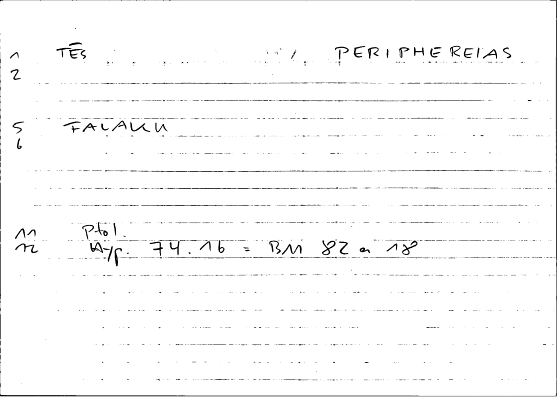 1 TĒS PERIPHEREIAS
2
5 FALAKU
6
11 Ptol.
12 Hyp. 74.16 = BM 82 a 18